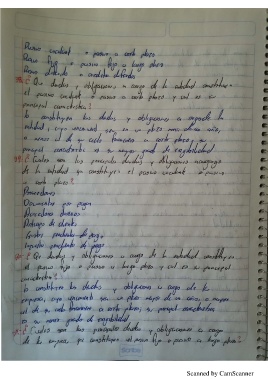 Pasivo circulante = pasivo a corto plazo
Pasivo fijo = pasivo fijo a largo plazo
Pasivo diferido = creditos diferidos
¿Que deudas y obligaciones a cargo de la entidad constituyen
el pasivo circulante o pasivo a corto plazo y cual es su
principal caracteristica?
lo constituyen las deudas y obligaciones a cargo de la
entidad, cuyo vencimiento sea en un plazo menor de un año,
o menor al de ciclo financiero a corto plazo, su
principal caracteristica es su mayor grado de exigibilidad
¿Cuales son los principales deudas y obligaciones a cargo
de la entidad que constituyen el pasivo circulante o pasivo
a corto plazo?
Proveedores
Documentos por pagar
Acreedores diversos
Anticipo de clientes
Gastos pendientes de pago
Impuestos pendientes de pago
¿Que deudas y obligaciones a cargo de la entidad constituyen
el pasivo fijo o pasivo a largo plazo y cual es su principal
caracteristica?
lo constituyen las deudas y obligaciones a cargo de la
empresa, cuyo vencimiento sea en un plazo mayor de un año, o mayor
al de su ciclo financiero a corto plazo, su principal caracteristica
es su menor grado de exigibilidad
¿Cuales son las principales deudas y obligaciones a cargo
de la empresa que constituyen el pasivo fijo o pasivo a largo plazo?
Scribe
Scanned by CamScanner